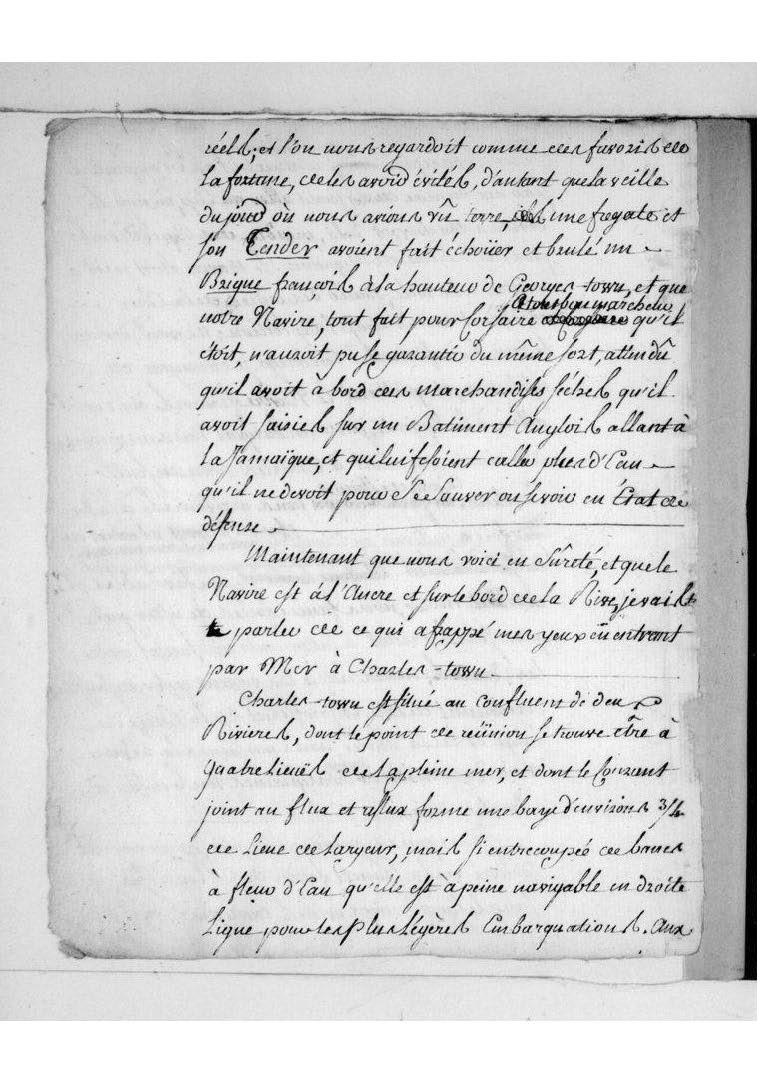 réels, et l'on nous regardoit comme des favoris de
la fortune, de les avoir évités, d'autant que la veille
du jour où nous avions vû terre, une fregate et
son Tender avoient fait échoüer et brulé un
Brique françois à la hauteur de Georges-town, et que
a tout bon marcheur
notre Navire, tout fait pour Corsaire qu'il
étoit, n'auroit pu se garantir du même sort, attendû
qu'il avoit à bord des marchandises séches qu'il
avoit saisies sur un Batiment Anglois allant à
la Jamaïque, et qui lui fesoient caller plus d'Eau
qu'il ne devoit pour se Sauver ou se voir en Etat de
défense.
Maintenant que nous voici en Sûreté, et que le
Navire est à l'Ancre et sur le bord de la Rive, je vais
parler de ce qui a frappé mes yeux en entrant
par Mer à Charles-town.
Charles-town est situé au Confluent de deux
Rivieres, dont le point de reünion se trouve être à
quatre lieuës de la pleine mer, et dont le Courant
joint au flux et reflux forme une baye d'environs 3/4
de Lieue de largeur, mais si entrecoupée de bancs
à fleur d'Eau qu'elle est à peine navigable en droite
Ligne pour les plus légères Embarquations. Aux